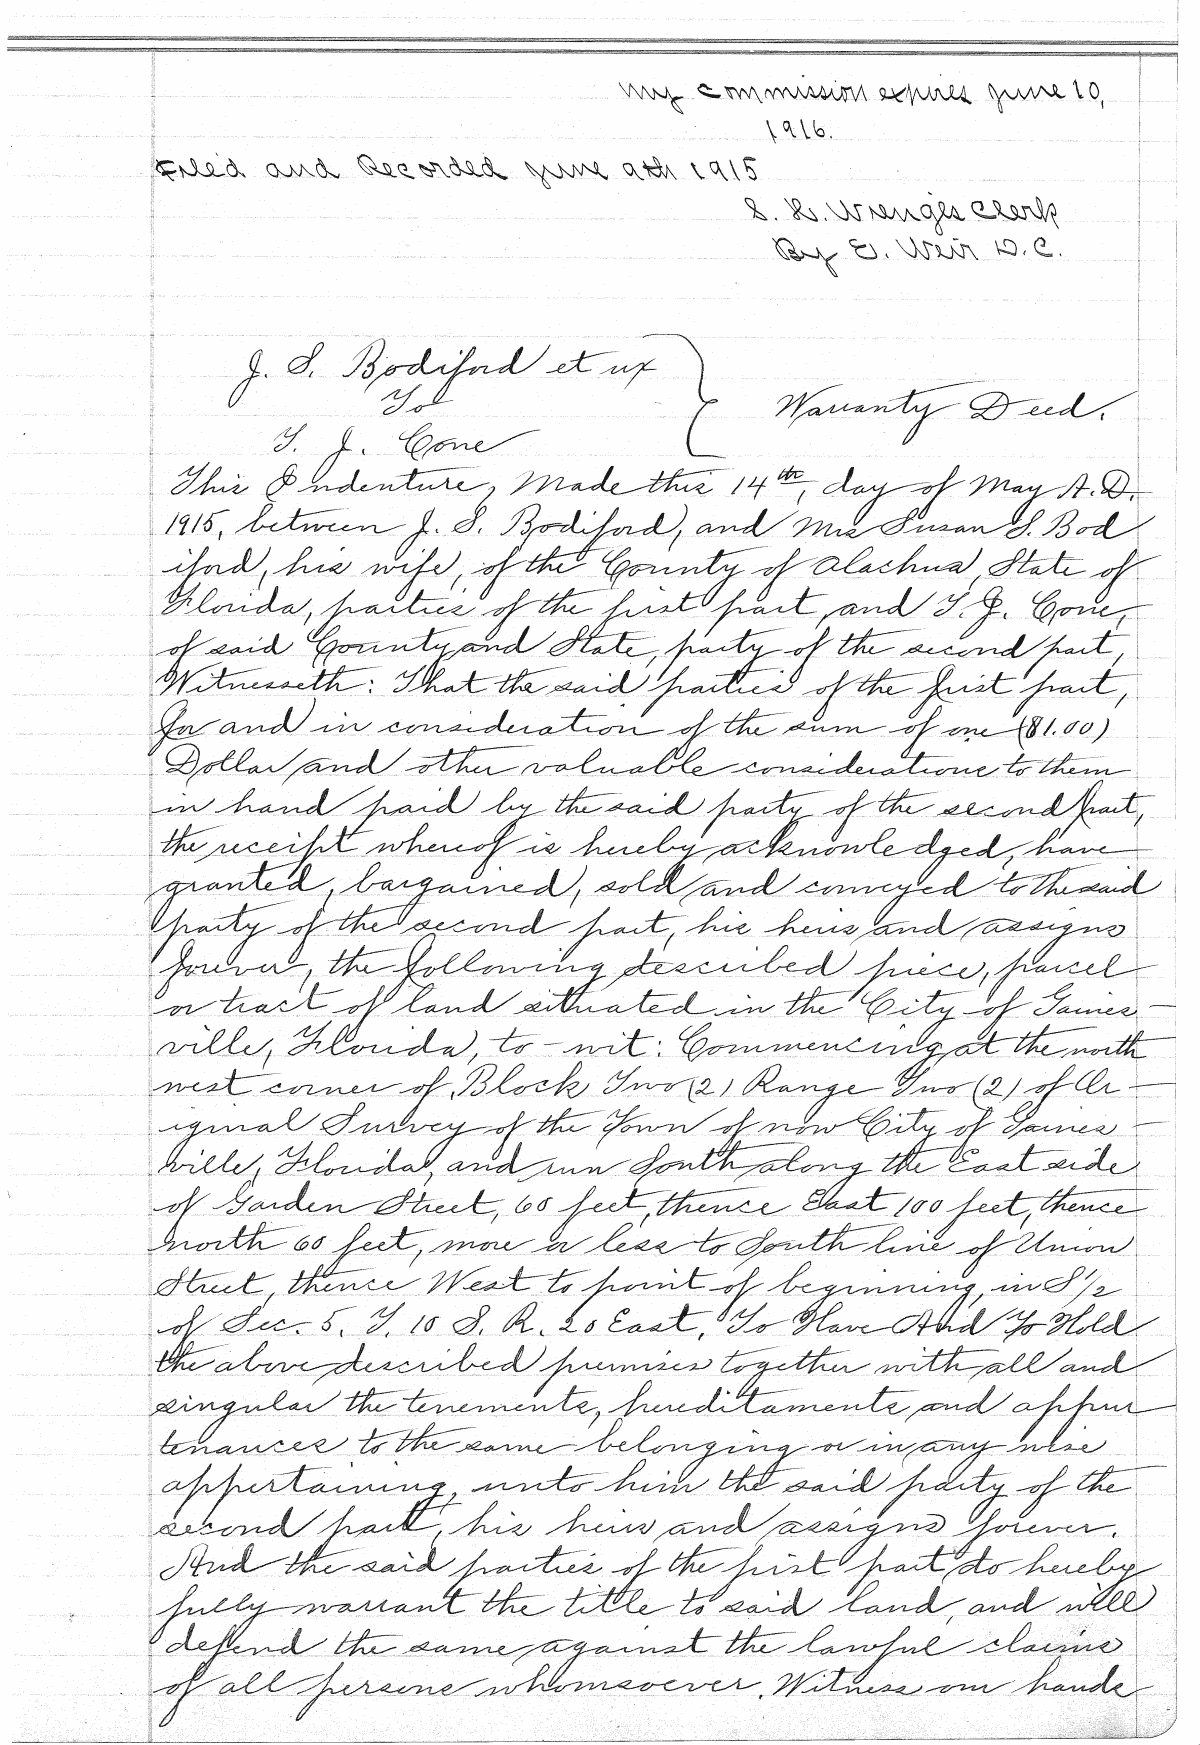 My commission expires June 10,
1916.
Filed and Recorded June 9th 1915
S. H. Wienges Clerk
By E. Weir D.C.
J. S. Bodiford et ux
To
T. J. Cone
Warranty Deed.
This Indenture, Made this 14th, day of May A.D.
1915, between J. S. Bodiford, and Mrs Susan S. Bod
iford, his wife, of the County of Alachua, State of
Florida, parties of the first part, and T. J. Cone,
of said County and State, party of the second part,
Witnesseth: That the said parties of the first part,
for and in consideration of the sum of one ($1.00)
Dollar and other valuable considerations to them
in hand paid by the said party of the second part,
the receipt whereof is hereby acknowledged, have
granted, bargained, sold and conveyed to the said
party of the second part, his heirs and assigns
forever, the following described piece, parcel
or tract of land situated in the City of Gaines-
ville, Florida, to-wit: Commencing at the north
west corner of Block Two (2) Range Two (2) of Or-
iginal Survey of the Town of now City of Gaines-
ville, Florida, and run South along the East side
of Garden Street, 60 feet, thence East 100 feet, thence
north 60 feet, more or less to South line of Union
Street, thence West to point of beginning, in S 1/2
of Sec. 5, T. 10 S. R. 20 East, To Have And To Hold
the above described premises together with all and
singular the tenements, hereditaments and appur
tenances to the same belonging or in any wise
appertaining, unto him the said party of the
second part, his heirs and assigns forever.
And the said parties of the first part do hereby
fully warrant the title to said land, and will
defend the same against the lawful claims
of all persons whomsoever. Witness our hands